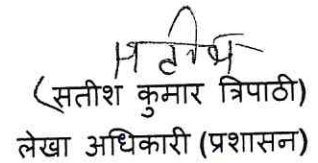 सतीश
(सतीश कुमार त्रिपाठी)
लेखा अधिकारी (प्रशासन)